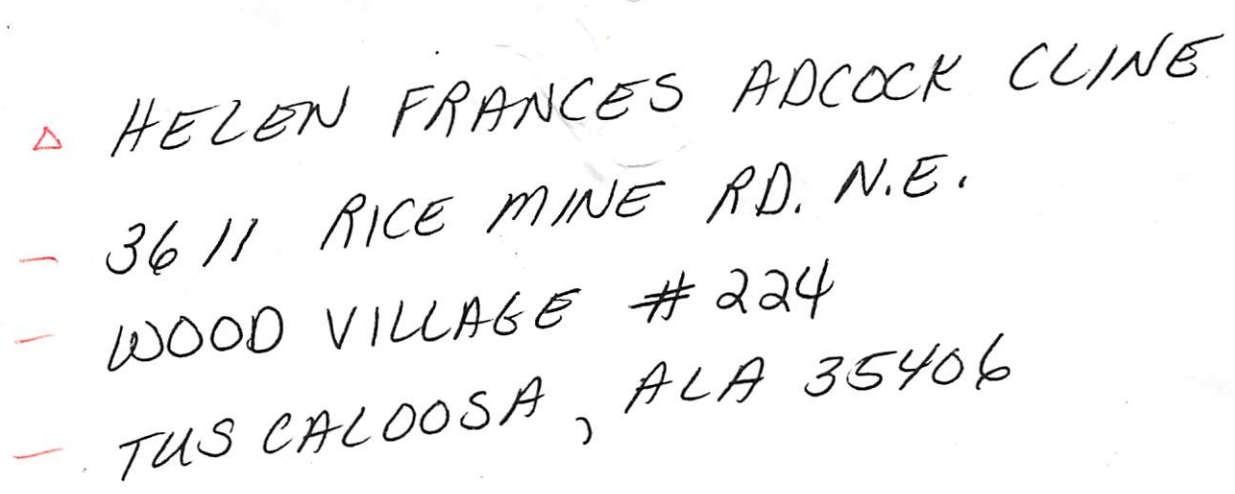 HELEN FRANCES ADCOCK CLINE
3611 RICE MINE RD. N.E.
WOOD VILLAGE #224
TUSCALOOSA, ALA 35406